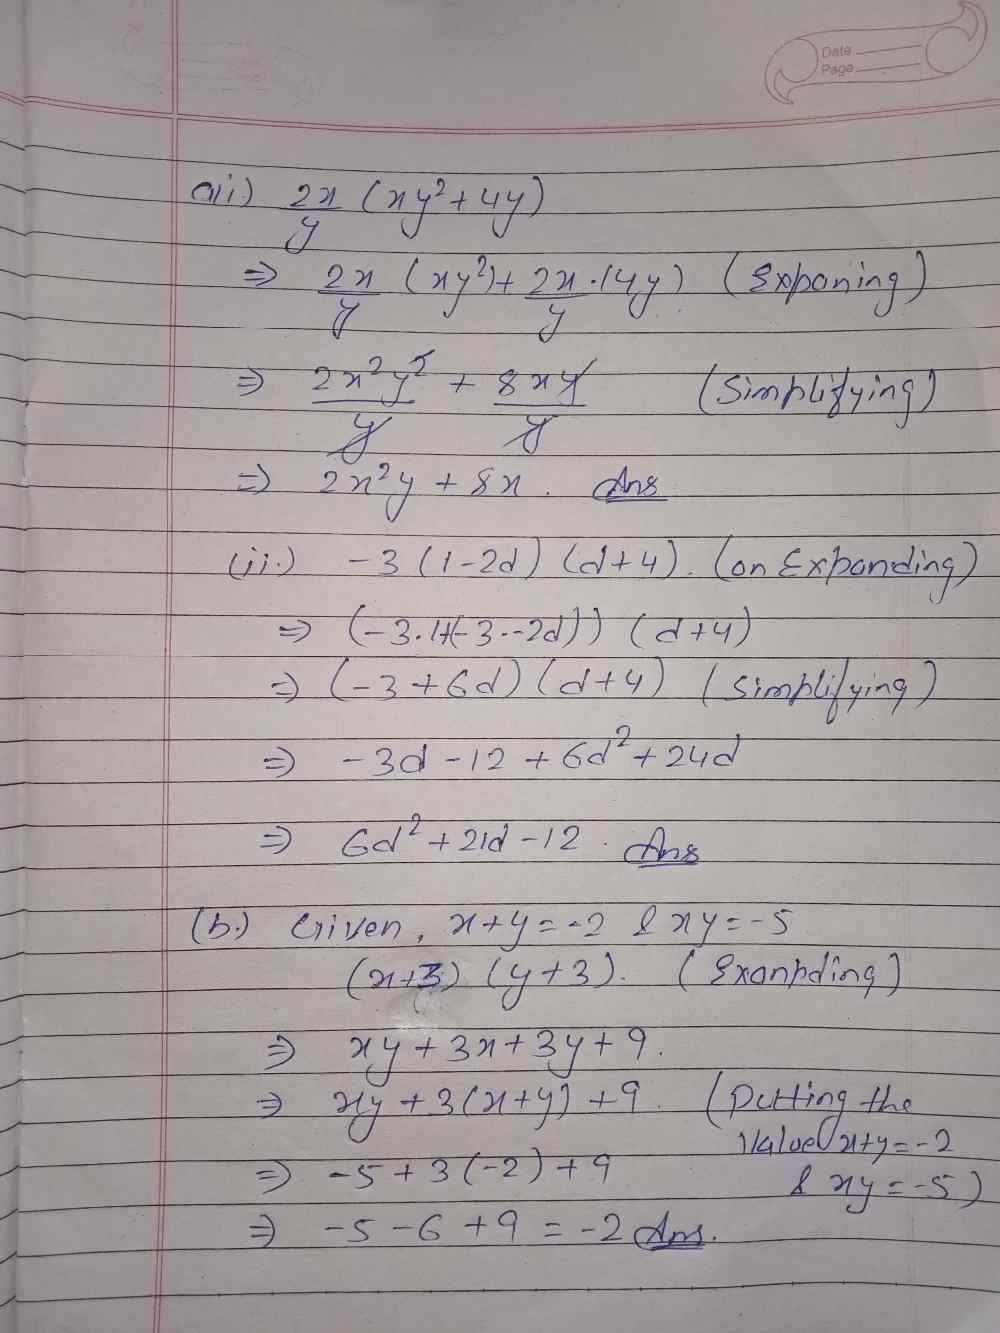 Date
Page
a)i.) 2x/y (xy² + 4y)
⇒ 2x/y (xy²) + 2x/y · (4y) (Exponing)
⇒ 2x²y²/y + 8xy/y (Simplifying)
⇒ 2x²y + 8x. Ans
(ii.) -3 (1-2d) (d+4). (on Expanding)
⇒ (-3.1+(-3.-2d)) (d+4)
⇒ (-3+6d) (d+4) (Simplifying)
⇒ -3d -12 + 6d² + 24d
⇒ 6d² + 21d -12. Ans
(b.) Given, x+y = -2 & xy = -5
(x+3) (y+3). (Exanpding)
⇒ xy + 3x + 3y + 9.
⇒ xy + 3(x+y) + 9. (Putting the
Value x+y = -2
⇒ -5 + 3(-2) + 9
& xy = -5)
⇒ -5 -6 +9 = -2 Ans.